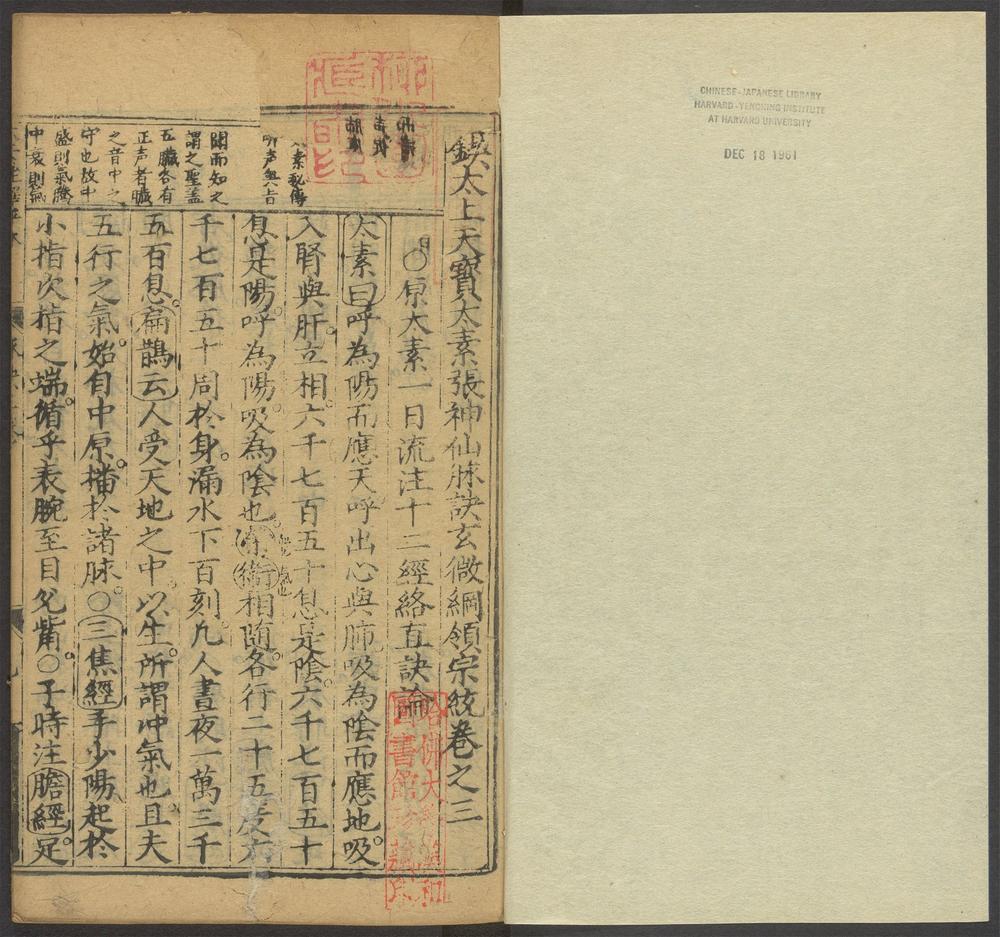 CHINESE-JAPANESE LIBRARY
HARVARD-YENCHING INSTITUTE
AT HARVARD UNIVERSITY
DEC 18 1961
鍥太上天寶太素張神仙脉訣玄微綱領宗統卷之三
○原太素一日流注十二經絡直訣論
太素曰呼為陽而應天呼出心與肺吸為陰而應地吸
入腎與肝立相六千七百五十息是陰六千七百五十
息是陽呼為陽吸為陰也榮衛相随各行二十五度六
千七百五十周於身漏水下百刻凡人晝夜一萬三千
五百息扁鵲云人受天地之中以生所謂冲氣也且夫
五行之氣始自中原播於諸脉○三焦經手少陽起於
小指次指之端循乎表腕至目兊觜○子時注膽經足
太素秘傳
听声與旨
聞而知之
謂之聖蓋
五臟各有
正声者臟
之音中之
守也故中
盛則氣騰
中衰則氣
哈佛大學漢和
圖書館珍藏印